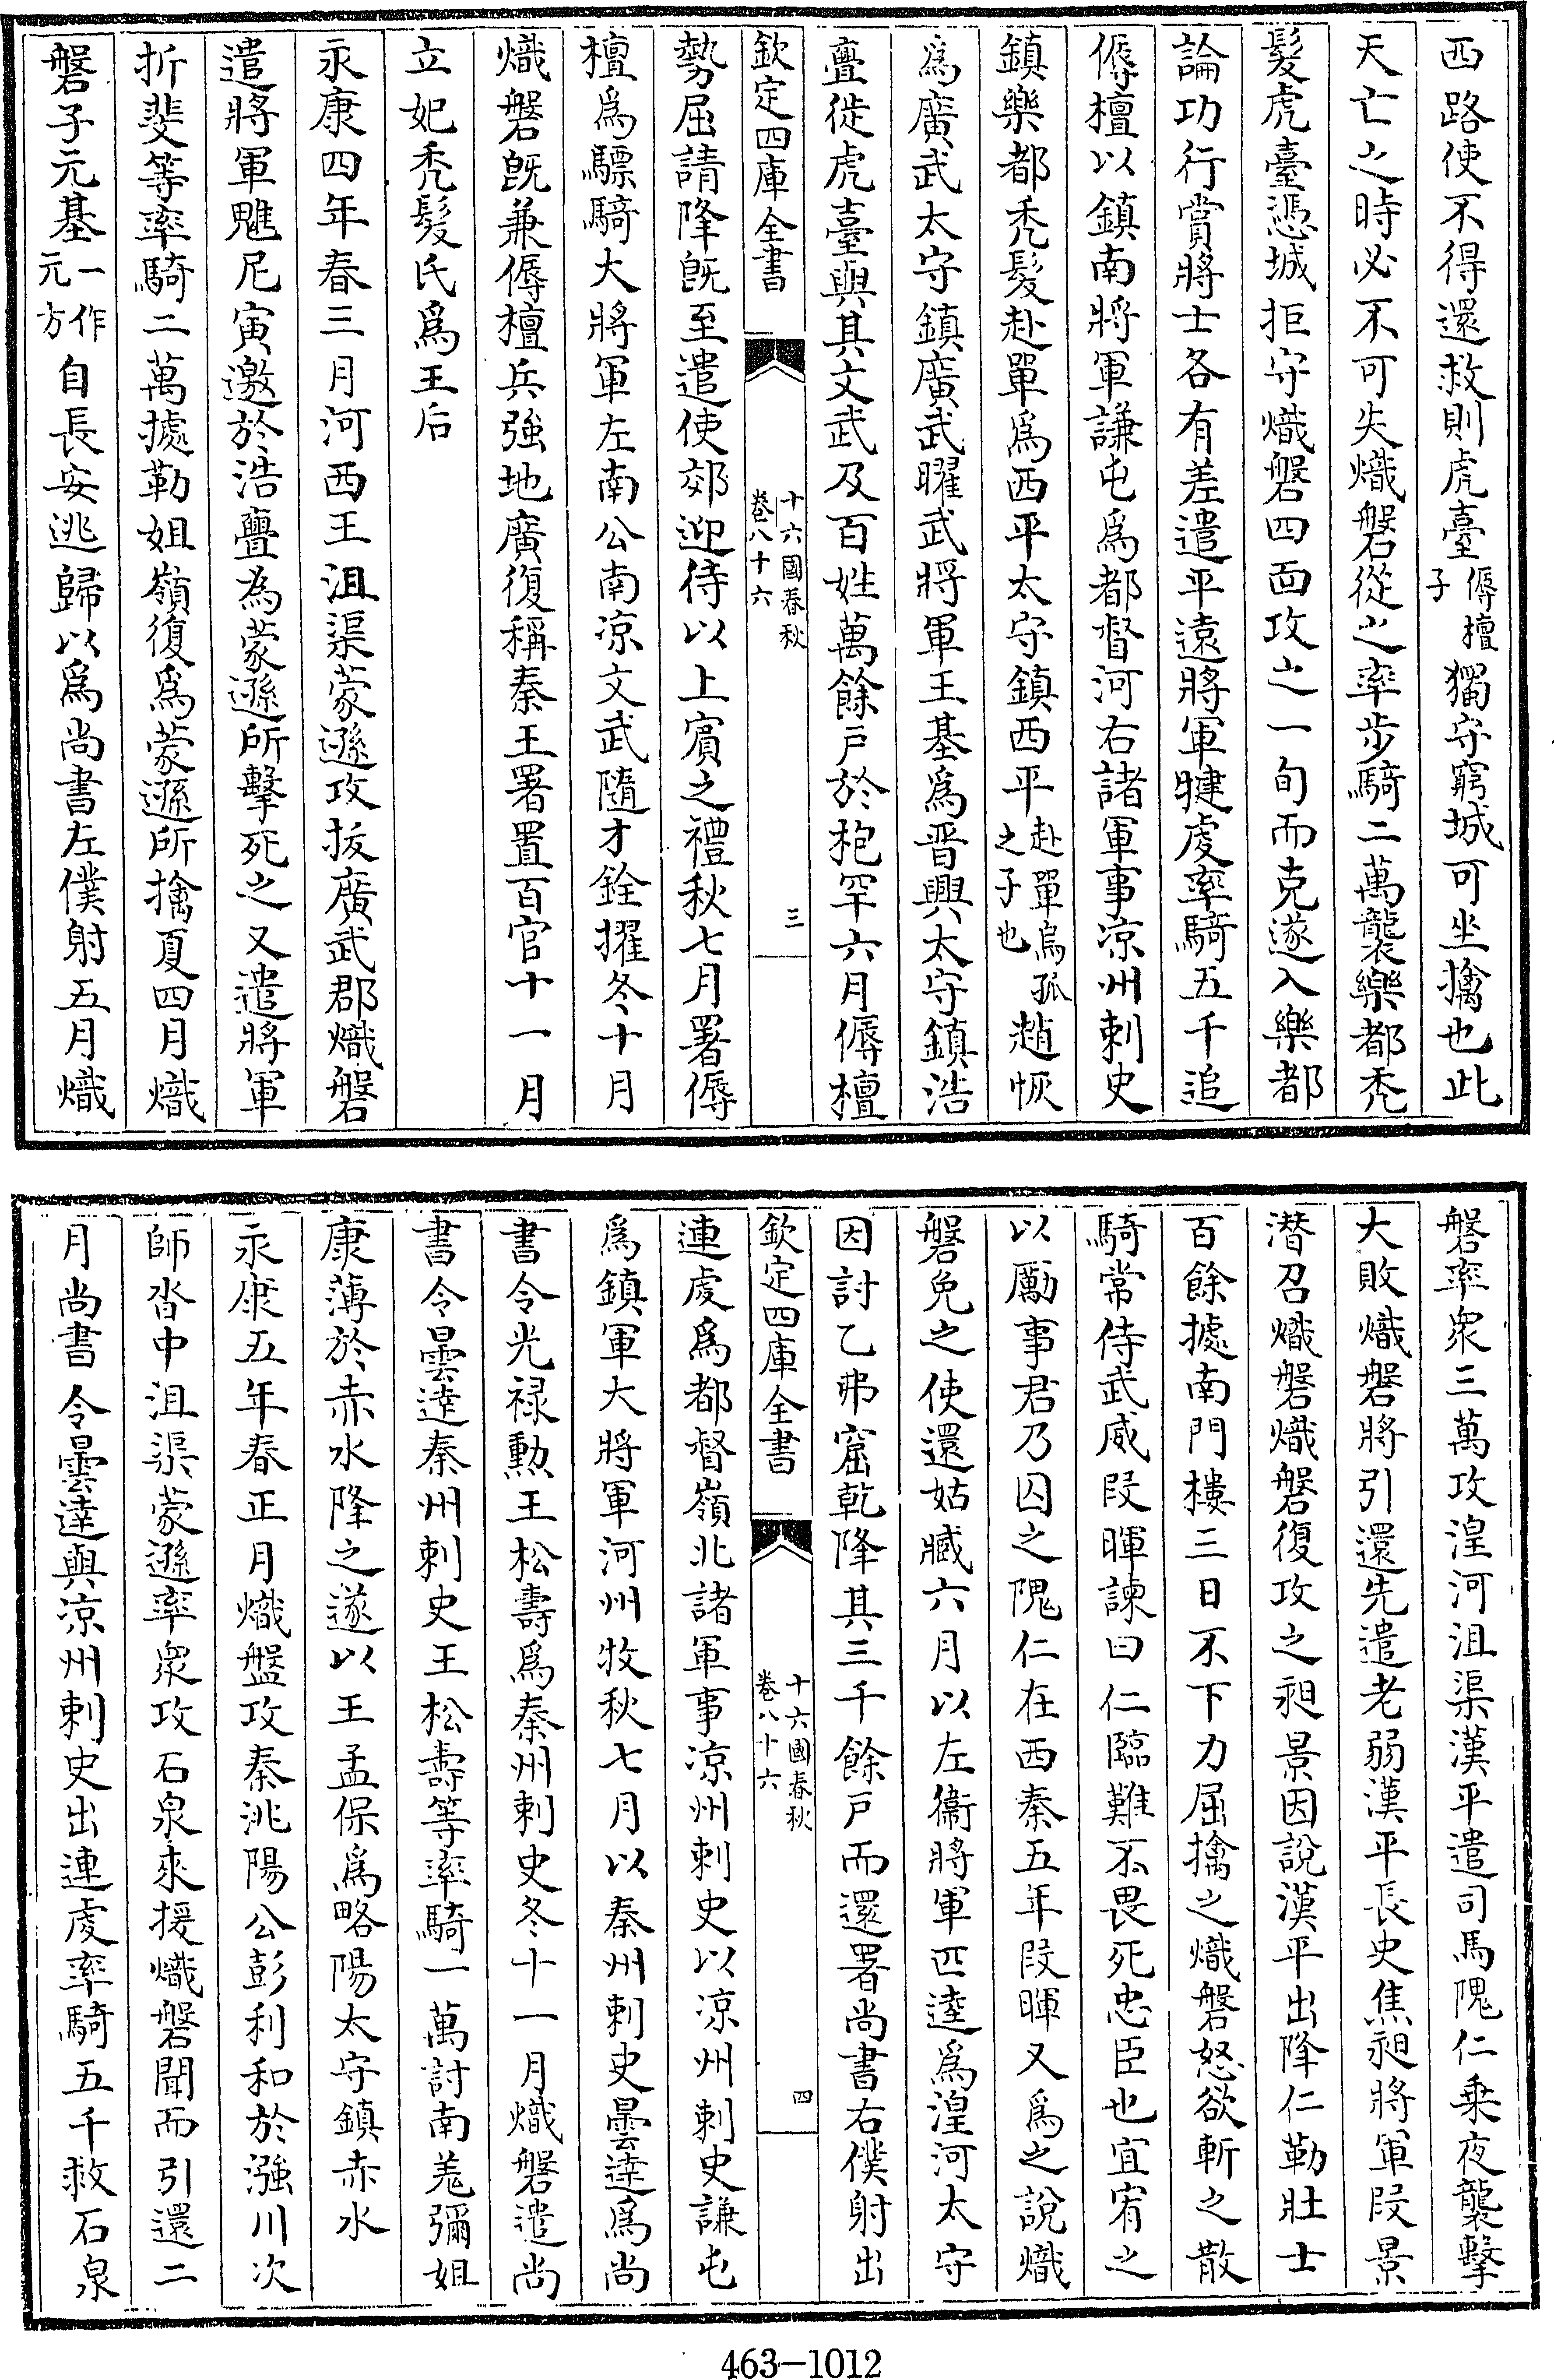 西路使不得還救則虎臺傉檀子獨守窮城可坐擒也此
天亡之時必不可失熾磐從之率步騎二萬襲樂都禿
髮虎臺憑城拒守熾磐四面攻之一旬而克遂入樂都
論功行賞將士各有差遣平遠將軍犍虔率騎五千追
傉檀以鎮南將軍謙屯為都督河右諸軍事凉州刺史
鎮樂都禿髮赴單為西平太守鎮西平赴單烏孤之子也趙恢
為廣武太守鎮廣武曜武將軍王基為晉興太守鎮浩
亹徙虎臺與其文武及百姓萬餘戶於枹罕六月傉檀
欽定四庫全書
十六國春秋
卷八十六
三
勢屈請降旣至遣使郊迎待以上賓之禮秋七月署傉
檀為驃騎大將軍左南公南凉文武隨才銓擢冬十月
熾磐旣兼傉檀兵強地廣復稱秦王署置百官十一月
立妃禿髮氏為王后
永康四年春三月河西王沮渠蒙遜攻拔廣武郡熾磐
遣將軍魋尼寅邀於浩亹為蒙遜所擊死之又遣將軍
折斐等率騎二萬據勒姐嶺復為蒙遜所擒夏四月熾
磐子元基一作元方自長安逃歸以為尚書左僕射五月熾
磐率衆三萬攻湟河沮渠漢平遣司馬隗仁乘夜襲擊
大敗熾磐將引還先遣老弱漢平長史焦昶將軍段景
潛召熾磐熾磐復攻之昶景因說漢平出降仁勒壯士
百餘據南門樓三日不下力屈擒之熾磐怒欲斬之散
騎常侍武威段暉諫曰仁臨難不畏死忠臣也宜宥之
以厲事君乃囚之隗仁在西秦五年段暉又為之說熾
磐免之使還姑臧六月以左衞將軍匹逵為湟河太守
因討乙弗窟乾降其三千餘戶而還署尚書右僕射出
欽定四庫全書
十六國春秋
卷八十六
四
連虔為都督嶺北諸軍事凉州刺史以凉州刺史謙屯
為鎮軍大將軍河州牧秋七月以秦州刺史曇逹為尚
書令光禄勲王松壽為秦州刺史冬十一月熾磐遣尚
書令曇逹秦州刺史王松壽等率騎一萬討南羌彌姐
康薄於赤水降之遂以王孟保為略陽太守鎮赤水
永康五年春正月熾盤攻秦洮陽公彭利和於漒川次
師沓中沮渠蒙遜率衆攻石泉來援熾磐聞而引還二
月尚書令曇逹與凉州刺史出連虔率騎五千救石泉
463-1012